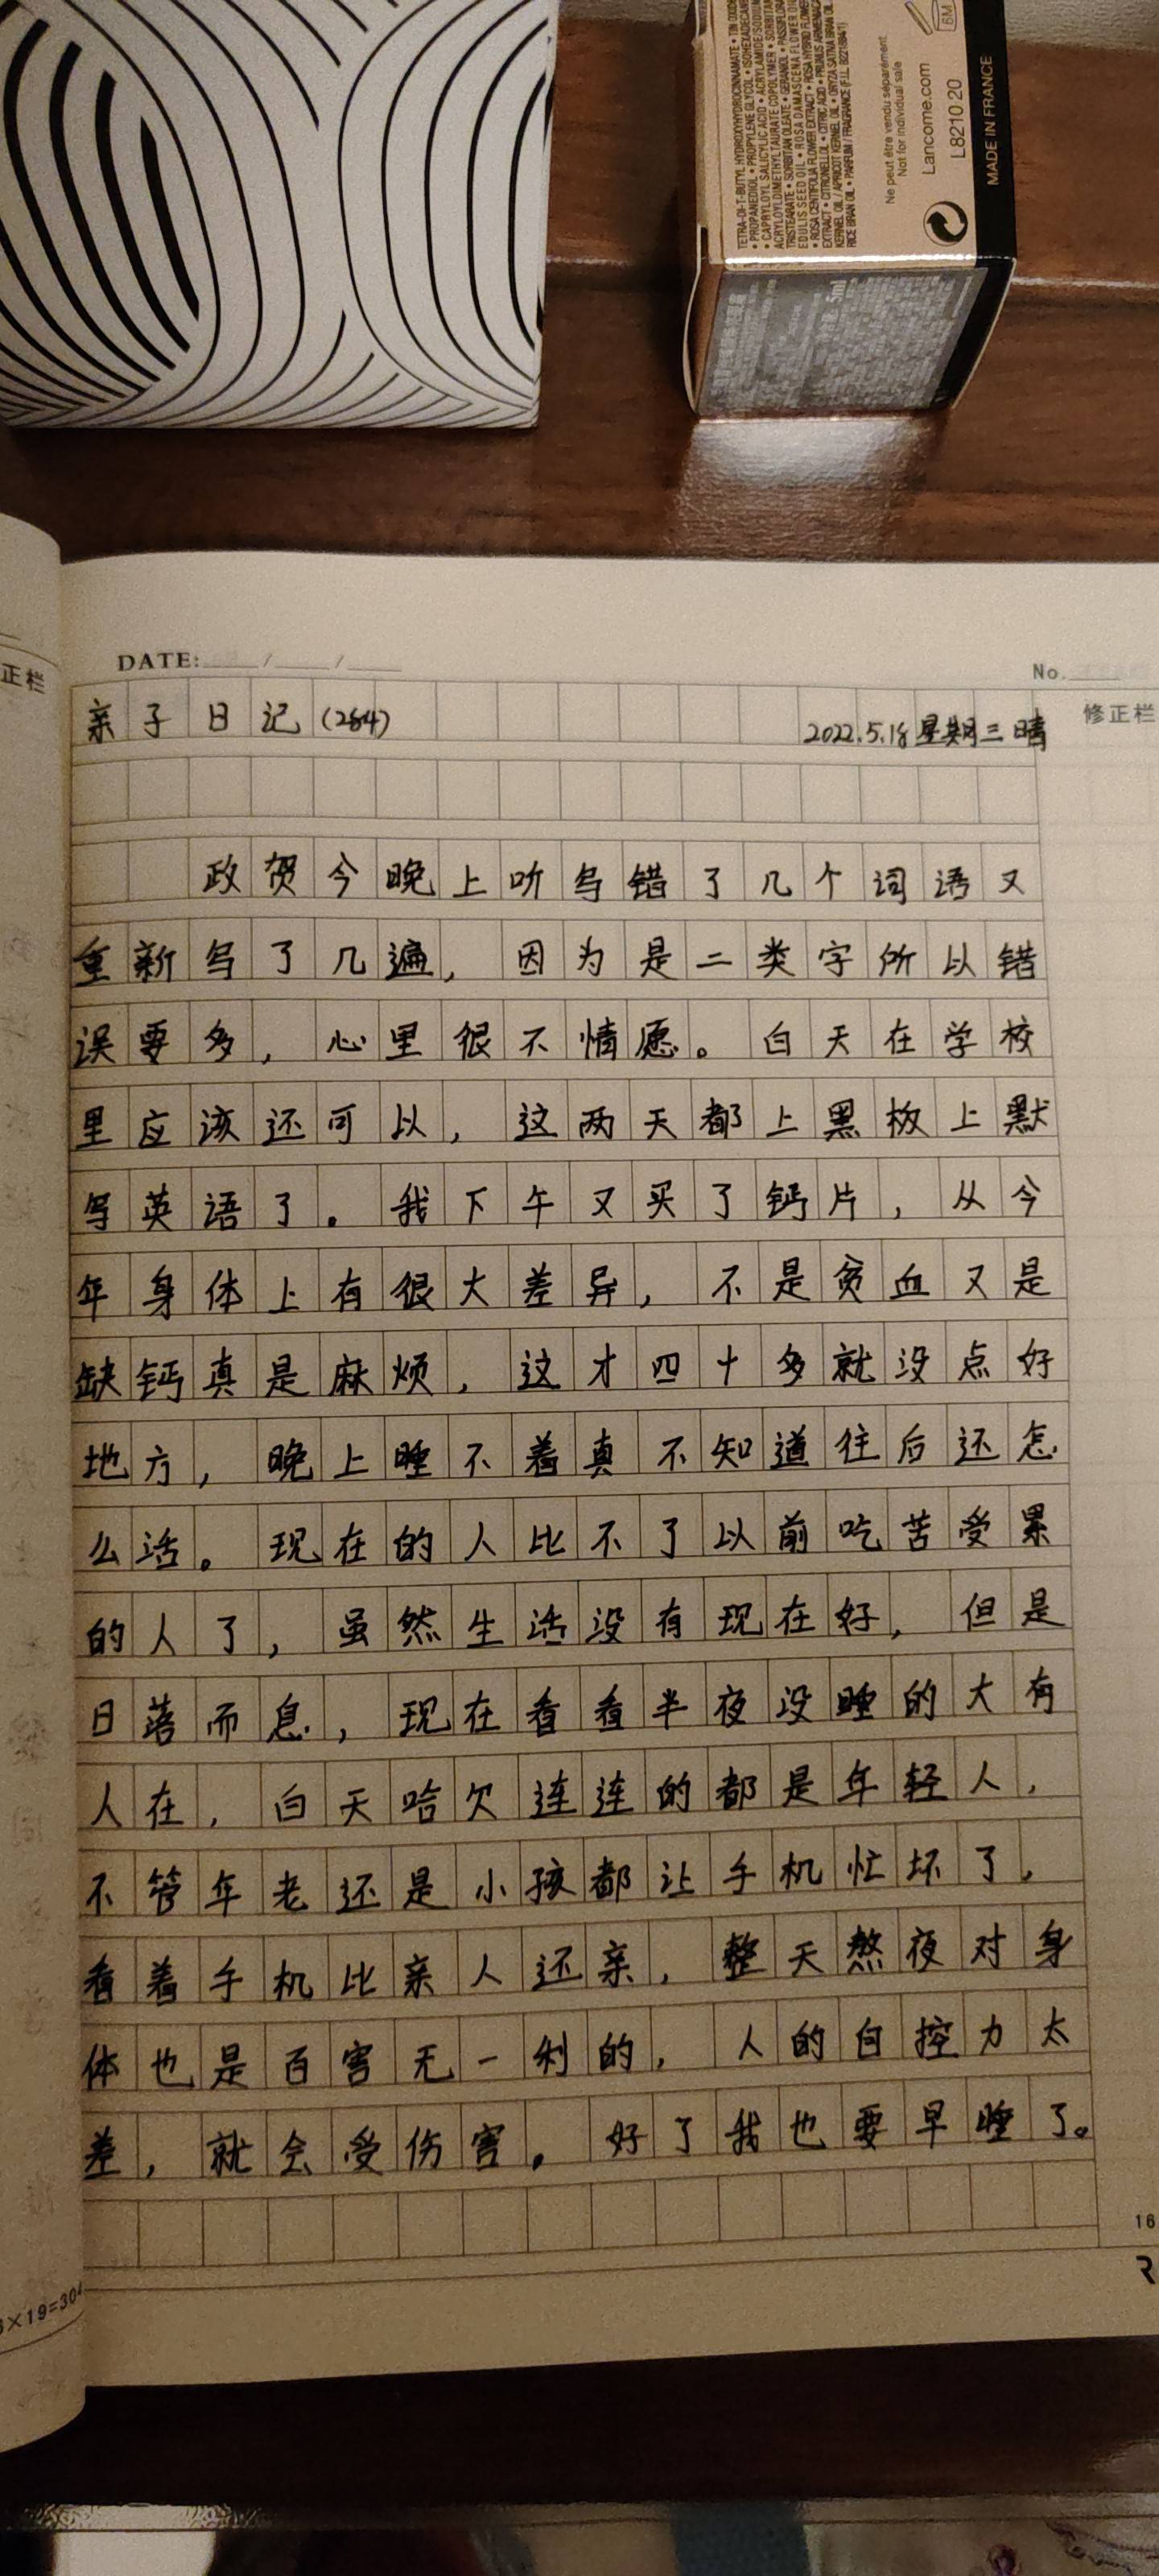 TETRA-DI-T-BUTYL HYDROXYHYDROCINNAMATE • TIN OXIDE
• PROPANEDIOL • PROPYLENE GLYCOL • ISOHEXADECANE
• CAPRYLOYL SALICYLIC ACID • ACRYLAMIDE/SODIUM
ACRYLOYLDIMETHYLTAURATE COPOLYMER • SORBITAN
TRISTEARATE • SORBITAN OLEATE • GERANIOL • PASSIFLORA
EDULIS SEED OIL • ROSA DAMASCENA FLOWER OIL
• ROSA CENTIFOLIA FLOWER EXTRACT • ROSA HYBRID FLOWER
EXTRACT • CITRONELLOL • CITRIC ACID • PRUNUS ARMENIACA
KERNEL OIL / APRICOT KERNEL OIL • ORYZA SATIVA BRAN OIL
RICE BRAN OIL • PARFUM / FRAGRANCE
Ne peut être vendu séparément
Not for individual sale
Lancome.com
L8210 20
MADE IN FRANCE
6M
5ml
正栏
DATE: / /
No.
修正栏
亲子日记(264)
2022.5.18 星期三 晴
政贺今晚上听写错了几个词语又
重新写了几遍，因为是二类字所以错
误要多，心里很不情愿。白天在学校
里应该还可以，这两天都上黑板上默
写英语了。我下午又买了钙片，从今
年身体上有很大差异，不是贫血又是
缺钙真是麻烦，这才四十多就没点好
地方，晚上睡不着真不知道往后还怎
么活。现在的人比不了以前吃苦受累
的人了，虽然生活没有现在好，但是
日落而息，现在看看半夜没睡的大有
人在，白天哈欠连连的都是年轻人，
不管年老还是小孩都让手机忙坏了，
看着手机比亲人还亲，整天熬夜对身
体也是百害无一利的，人的自控力太
差，就会受伤害。好了我也要早睡了。
16
×19=304